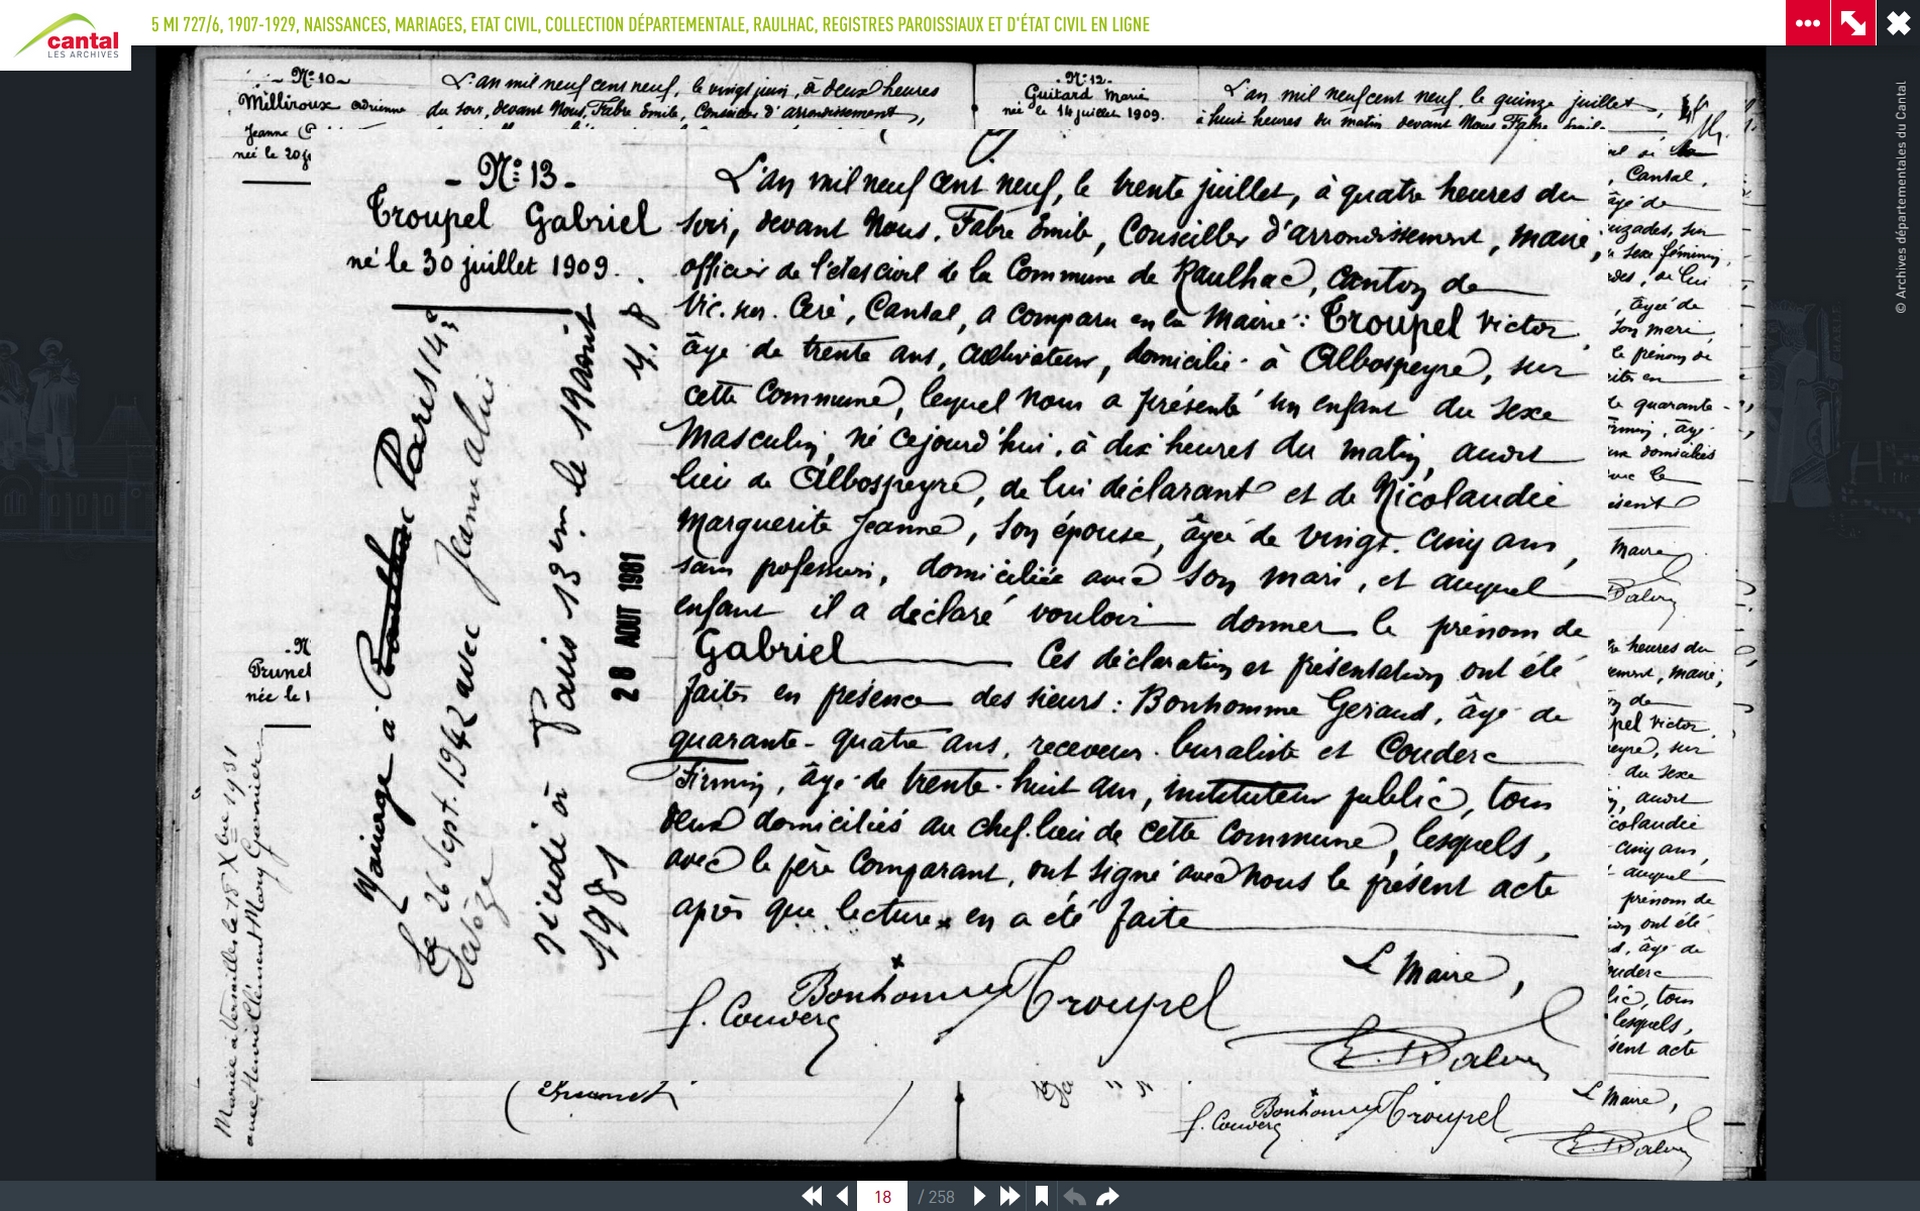 cantal
LES ARCHIVES
5 MI 727/6, 1907-1929, NAISSANCES, MARIAGES, ETAT CIVIL, COLLECTION DÉPARTEMENTALE, RAULHAC, REGISTRES PAROISSIAUX ET D'ÉTAT CIVIL EN LIGNE
© Archives départementales du Cantal
- N° 10 -
Milliroux Adrienne
Jeanne
née le 20
L'an mil neuf cent neuf, le vingt juin, à deux heures
du soir, devant Nous, Fabre Emile, Conseiller d'arrondissement,
- N° 12 -
Guitard Marie
née le 14 juillet 1909.
L'an mil neuf cent neuf, le quinze juillet,
à huit heures du matin devant Nous Fabre Emile
- N° 13 -
Troupel Gabriel
né le 30 juillet 1909.
Mariage à Paris 14e
le 26 Sept. 1942 avec Jeanne
décédé à Paris 13em le 19 août
1981
28 AOUT 1981
L'an mil neuf cent neuf, le trente juillet, à quatre heures du
soir, devant Nous, Fabre Emile, Conseiller d'arrondissement, maire,
officier de l'état civil de la Commune de Raulhac, canton de
Vic-sur-Cère, Cantal, a comparu en la Mairie: Troupel Victor,
âgé de trente ans, cultivateur, domicilié à Albospeyre, sur
cette Commune, lequel nous a présenté un enfant du sexe
Masculin, né cejourd'hui, à dix heures du matin, audit
lieu de Albospeyre, de lui déclarant et de Nicolaudie
Marguerite Jeanne, son épouse, âgée de vingt-cinq ans,
sans profession, domiciliée avec son mari, et auquel
enfant il a déclaré vouloir donner le prénom de
Gabriel Ces déclaration et présentation ont été
faites en présence des sieurs: Bonhomme Geraud, âgé de
quarante-quatre ans, receveur-buraliste et Couderc
Firmin, âgé de trente-huit ans, instituteur public, tous
deux domiciliés au chef-lieu de cette commune, lesquels,
avec le père comparant, ont signé avec Nous le présent acte
après que lecture en a été faite
Le Maire,
Bonhomme Troupel
F. Couderc
Prunet
née le 1
Mariée à Versailles le 18 Xbre 1931
avec Henri Clément Mary Garnier
Cantal,
âgé de
sexe féminin,
de lui
âgée de
son mari,
le prénom de
de quarante-
domiciliés
avec le
Maire
heures du
maire,
Victor,
sur
du sexe
audit
cinq ans,
auquel
prénom de
ont été
âgé de
tous
lesquels,
acte
Bonhomme Troupel
F. Couderc
Le Maire,
18 / 258